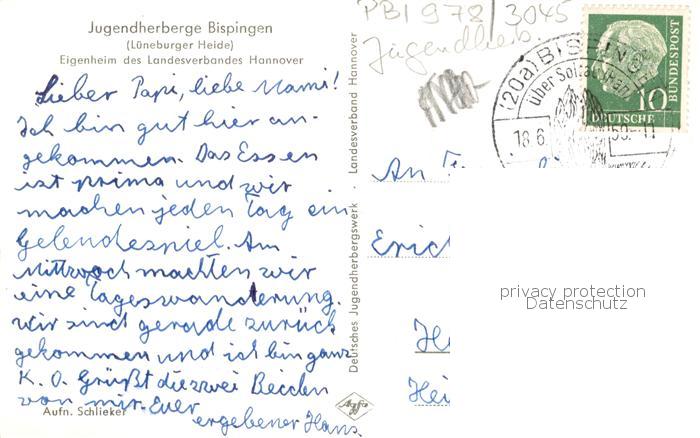 Jugendherberge Bispingen
(Lüneburger Heide)
Eigenheim des Landesverbandes Hannover
Lieber Papi, liebe Mami!
Ich bin gut hier an-
gekommen. Das Essen
ist prima und wir
machen jeden Tag ein
Gelendespiel. Am
Mittwoch machten wir
eine Tageswanderung.
Wir sind gerade zurück
gekommen und ich bin ganz
K. O. Grüßt die zwei Beiden
von mir. Euer
ergebener Hans
Aufn. Schlieker
Deutsches Jugendherbergswerk · Landesverband Hannover
Agfa
PBI 978/3045
Jugendherb.
(20a) BISPING
über Soltau (Han
18.6. 59.-11
10
DEUTSCHE
BUNDESPOST
An
Erich
H
Hei
privacy protection
Datenschutz